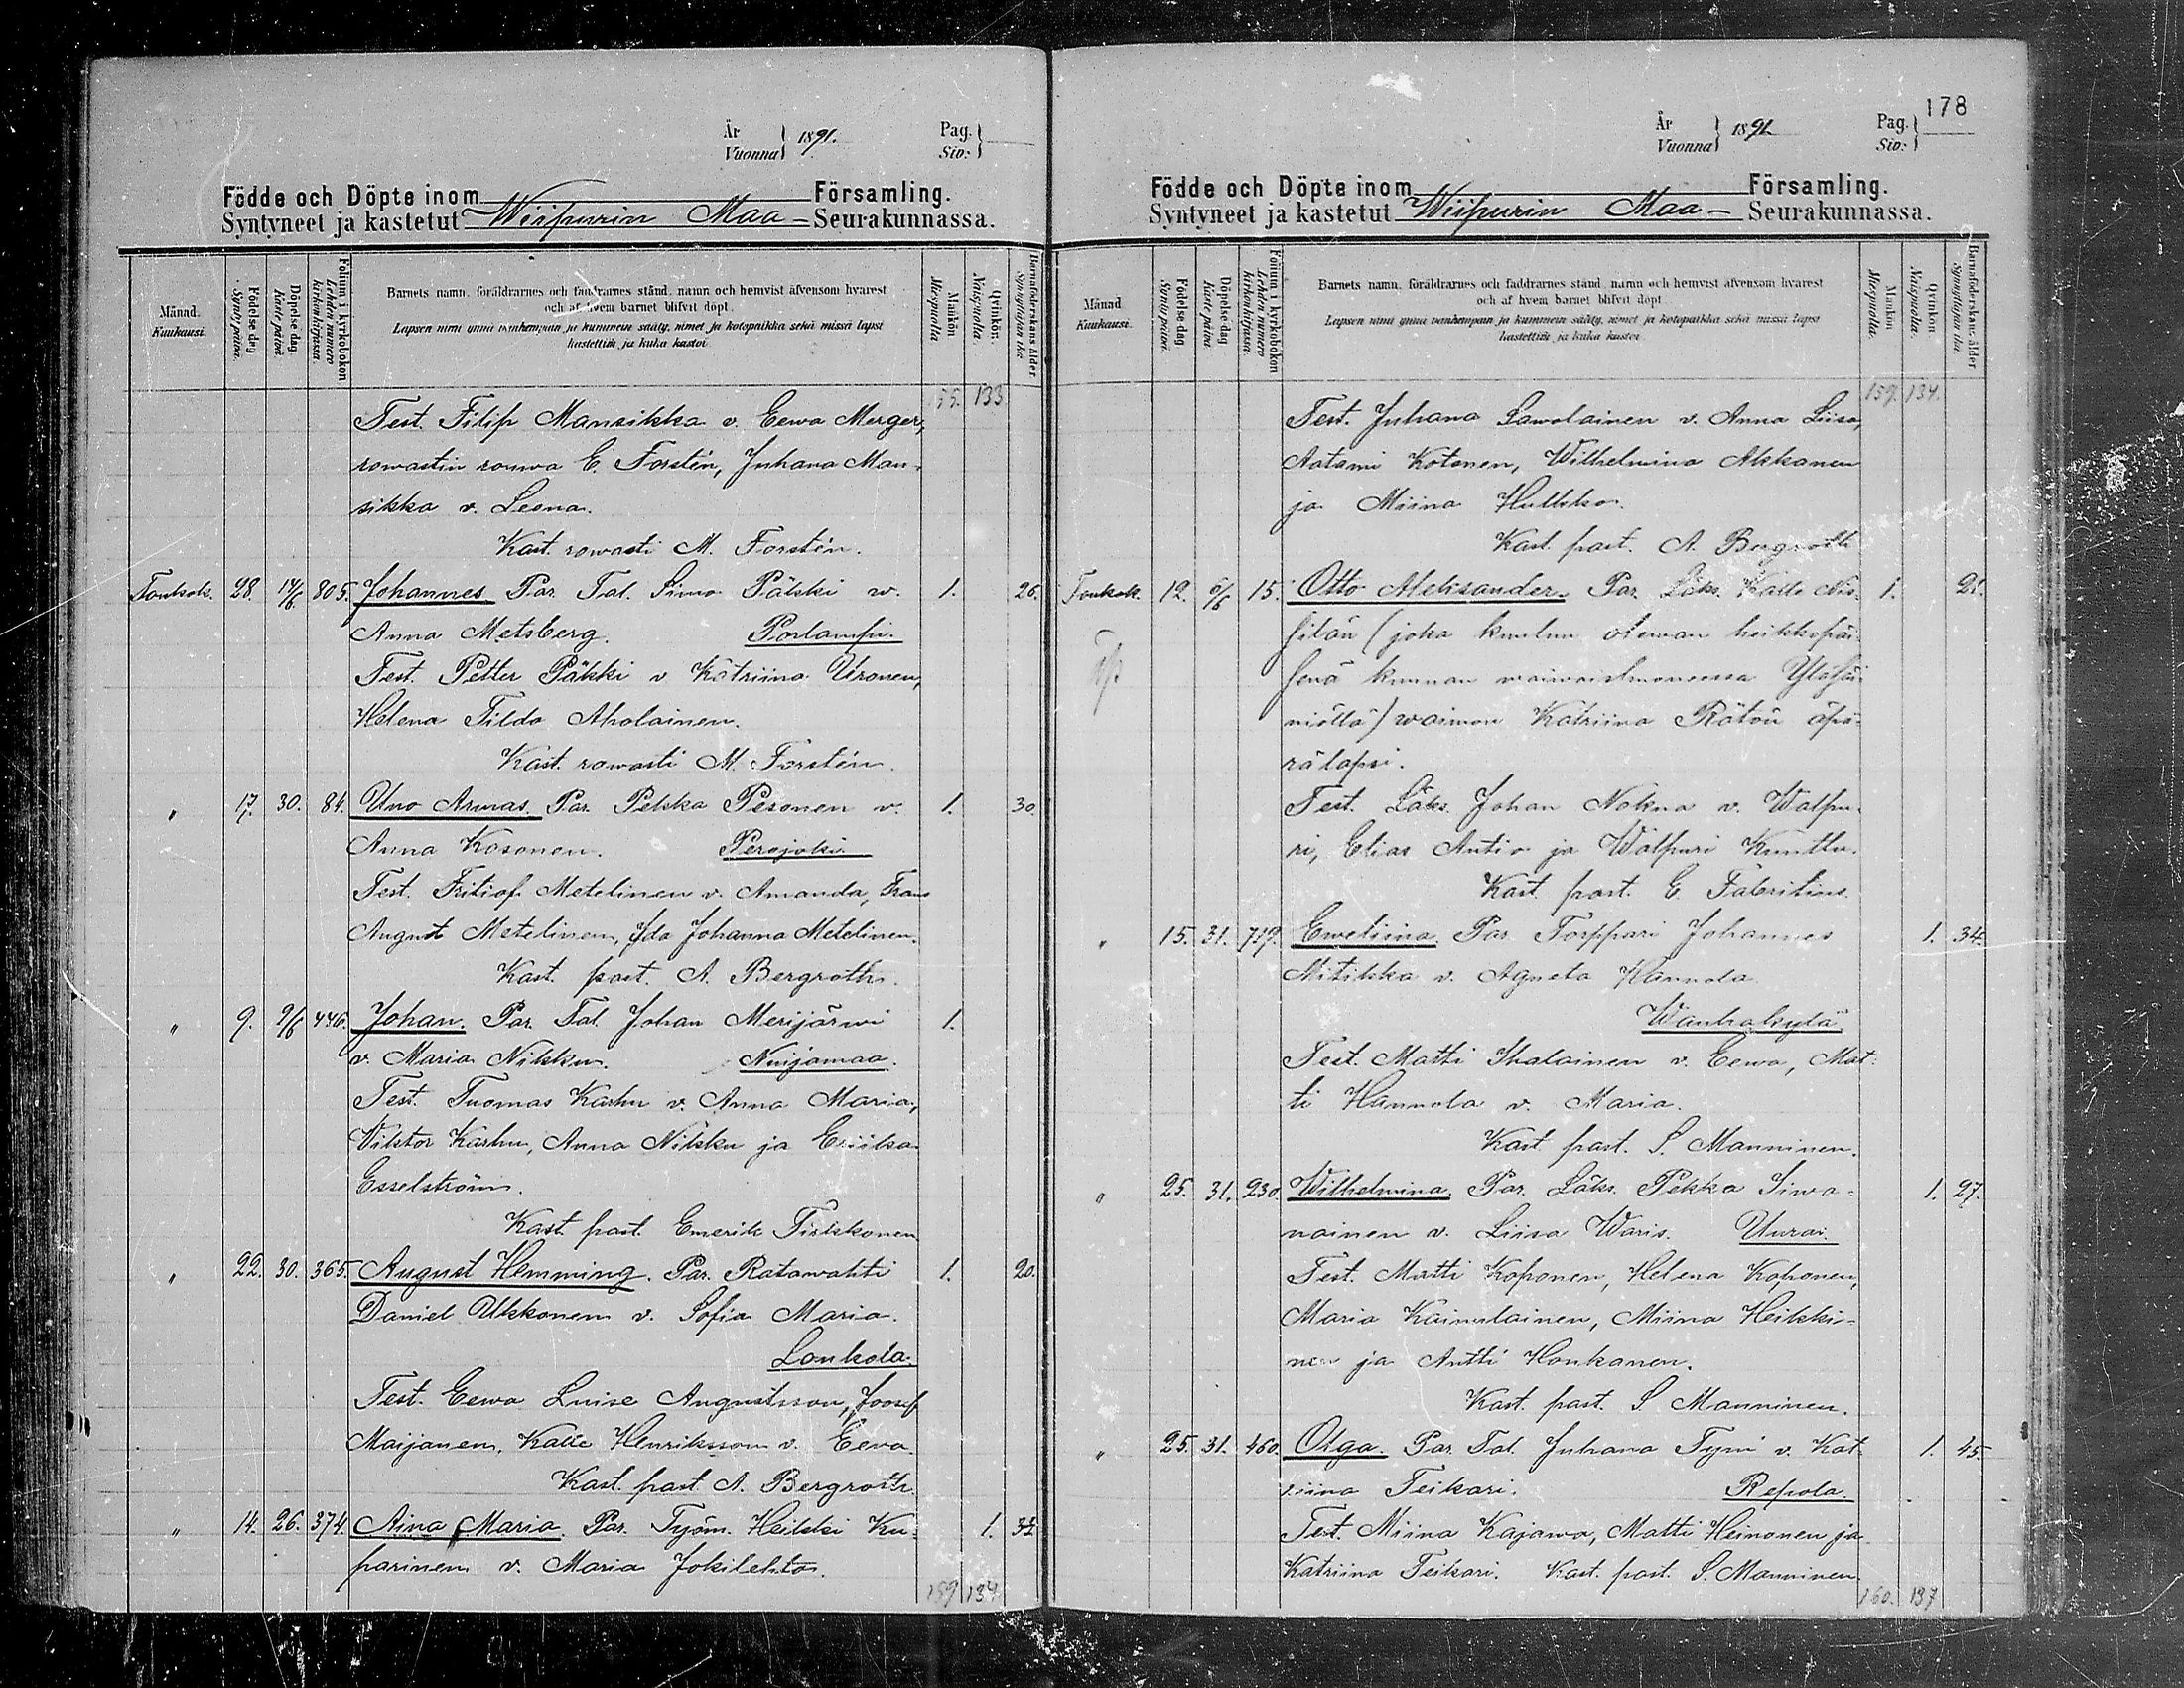 År
Vuonna 1891.
Pag.
Siv:
Födde och Döpte inom Församling.
Syntyneet ja kastetut Wiipurin Maa- Seurakunnassa.
Månad.
Kuukausi.
Födelse dag
Syntypäivä.
Döpelse dag
Kaste päivä
Folium i kyrkoboken
Lehden numero
kirkonkirjassa.
Barnets namn, föräldrarnes och faddrarnes stånd, namn och hemvist äfvensom hvarest
och af hvem barnet blifvit döpt.
Lapsen nimi ynnä vanhempain ja kummein sääty, nimet ja kotopaikka sekä missä lapsi
kastettiin ja kuka kastoi
Mankön
Miespuolia
Qvinkön.
Naispuolia.
Barnaföderskans ålder
Synyttäjän ikä
133
Test. Filip Mansikka v. Eewa Merger,
rowastin rouwa E. Forstén, Juhana Man-
sikka v. Leena.
Kast. rowasti M. Forstén.
Toukok. 28. 14/6 805. Johannes. Par. Tal. Simo Pälski w. 1. 26.
Anna Metsberg. Porlampi.
Test. Petter Päkki v Katriina Uronen,
Helena Tilda Aholainen.
Kast. rowasti M. Forstén.
" 17. 30. 84. Uno Armas. Par. Pekka Pesonen v. 1. 30.
Anna Kosonen. Perojoki.
Test. Fritiof Metelinen v. Amanda, Frans
August Metelinen, Ida Johanna Metelinen.
Kast. past. A. Bergroth.
" 9. 9/6 446. Johan. Par. Tal. Johan Merijärwi 1.
v. Maria Nikku. Nuijamaa.
Test. Tuomas Karhu v. Anna Maria,
Viktor Karhu, Anna Nikku ja Eriika
Esselström.
Kast. past. Emerik Tiskkonen
" 22. 30. 365. August Hemming. Par. Ratawahti 1. 20.
Daniel Ukkonen v. Sofia Maria.
Lonkola.
Test. Eewa Luise Augustsson, Joosef
Maijanen, Kalle Henriksson v. Eeva.
Kast. past. A. Bergroth.
" 14. 26. 374. Aina Maria. Par. Työm. Heikki Ku- 1. 34
parinen v. Maria Jokilehto.
159 134
178
År
Vuonna 1891
Pag.
Siv:
Födde och Döpte inom Församling.
Syntyneet ja kastetut Wiipurin Maa- Seurakunnassa.
Månad
Kuukausi.
Födelse dag
Synty päivä.
Döpelse dag
Kaste päivä
Folium i kyrkoboken
Lehden numero
kirkonkirjassa.
Barnets namn, föräldrarnes och faddrarnes stånd, namn och hemvist äfvensom hvarest
och af hvem barnet blifvit döpt
Lapsen nimi ynnä vanhempain ja kummein sääty, nimet ja kotopaikka sekä missä lapsi
kastettiin ja kuka kastoi
Mankön
Miespuolia.
Qvinkön
Naispuolia.
Barnaföderskans ålder
Synyttäjän ikä
159. 134.
Test. Juhana Sawolainen v. Anna Liisa,
Aatami Kotonen, Wilhelmina Akkanen
ja Miina Hulkko.
Kast. past. A. Bergroth
Toukok. 12. 6/6 15. Otto Aleksander. Par. Läks. Kalle Nis- 1. 21.
silän (joka kuuluu olewan heikkopäi-
senä kunnan waiwaishuoneessa Yläsäi-
niöllä) waimon Katriina Rätön äpä-
rälapsi.
Test. Läks. Johan Nokua v. Walpu-
ri, Elias Antio ja Walpuri Kunttu.
Kast. past. E. Fabritius.
" 15. 31. 719. Eweliina. Par. Torppari Johannes 1. 34.
Mitikka v. Agneta Hannola.
Wanhakylä
Test. Matti Ihalainen v. Eewa, Mat-
ti Hannola v. Maria.
Kast. past. S. Manninen.
" 25. 31. 230. Wilhelmina. Par. Läks. Pekka Siwo- 1. 27.
nainen v. Liisa Waris. Uuras.
Test. Matti Koponen, Helena Koponen,
Maria Kainulainen, Miina Heikki-
nen ja Antti Honkanen.
Kast. past. S Manninen.
" 25. 31. 460. Olga. Par. Tal. Juhana Tyni v. Kat- 1. 45.
riina Teikari. Repola.
Test. Miina Kajawa, Matti Heinonen ja
Katriina Teikari. Kast. past. S. Manninen.
160. 137